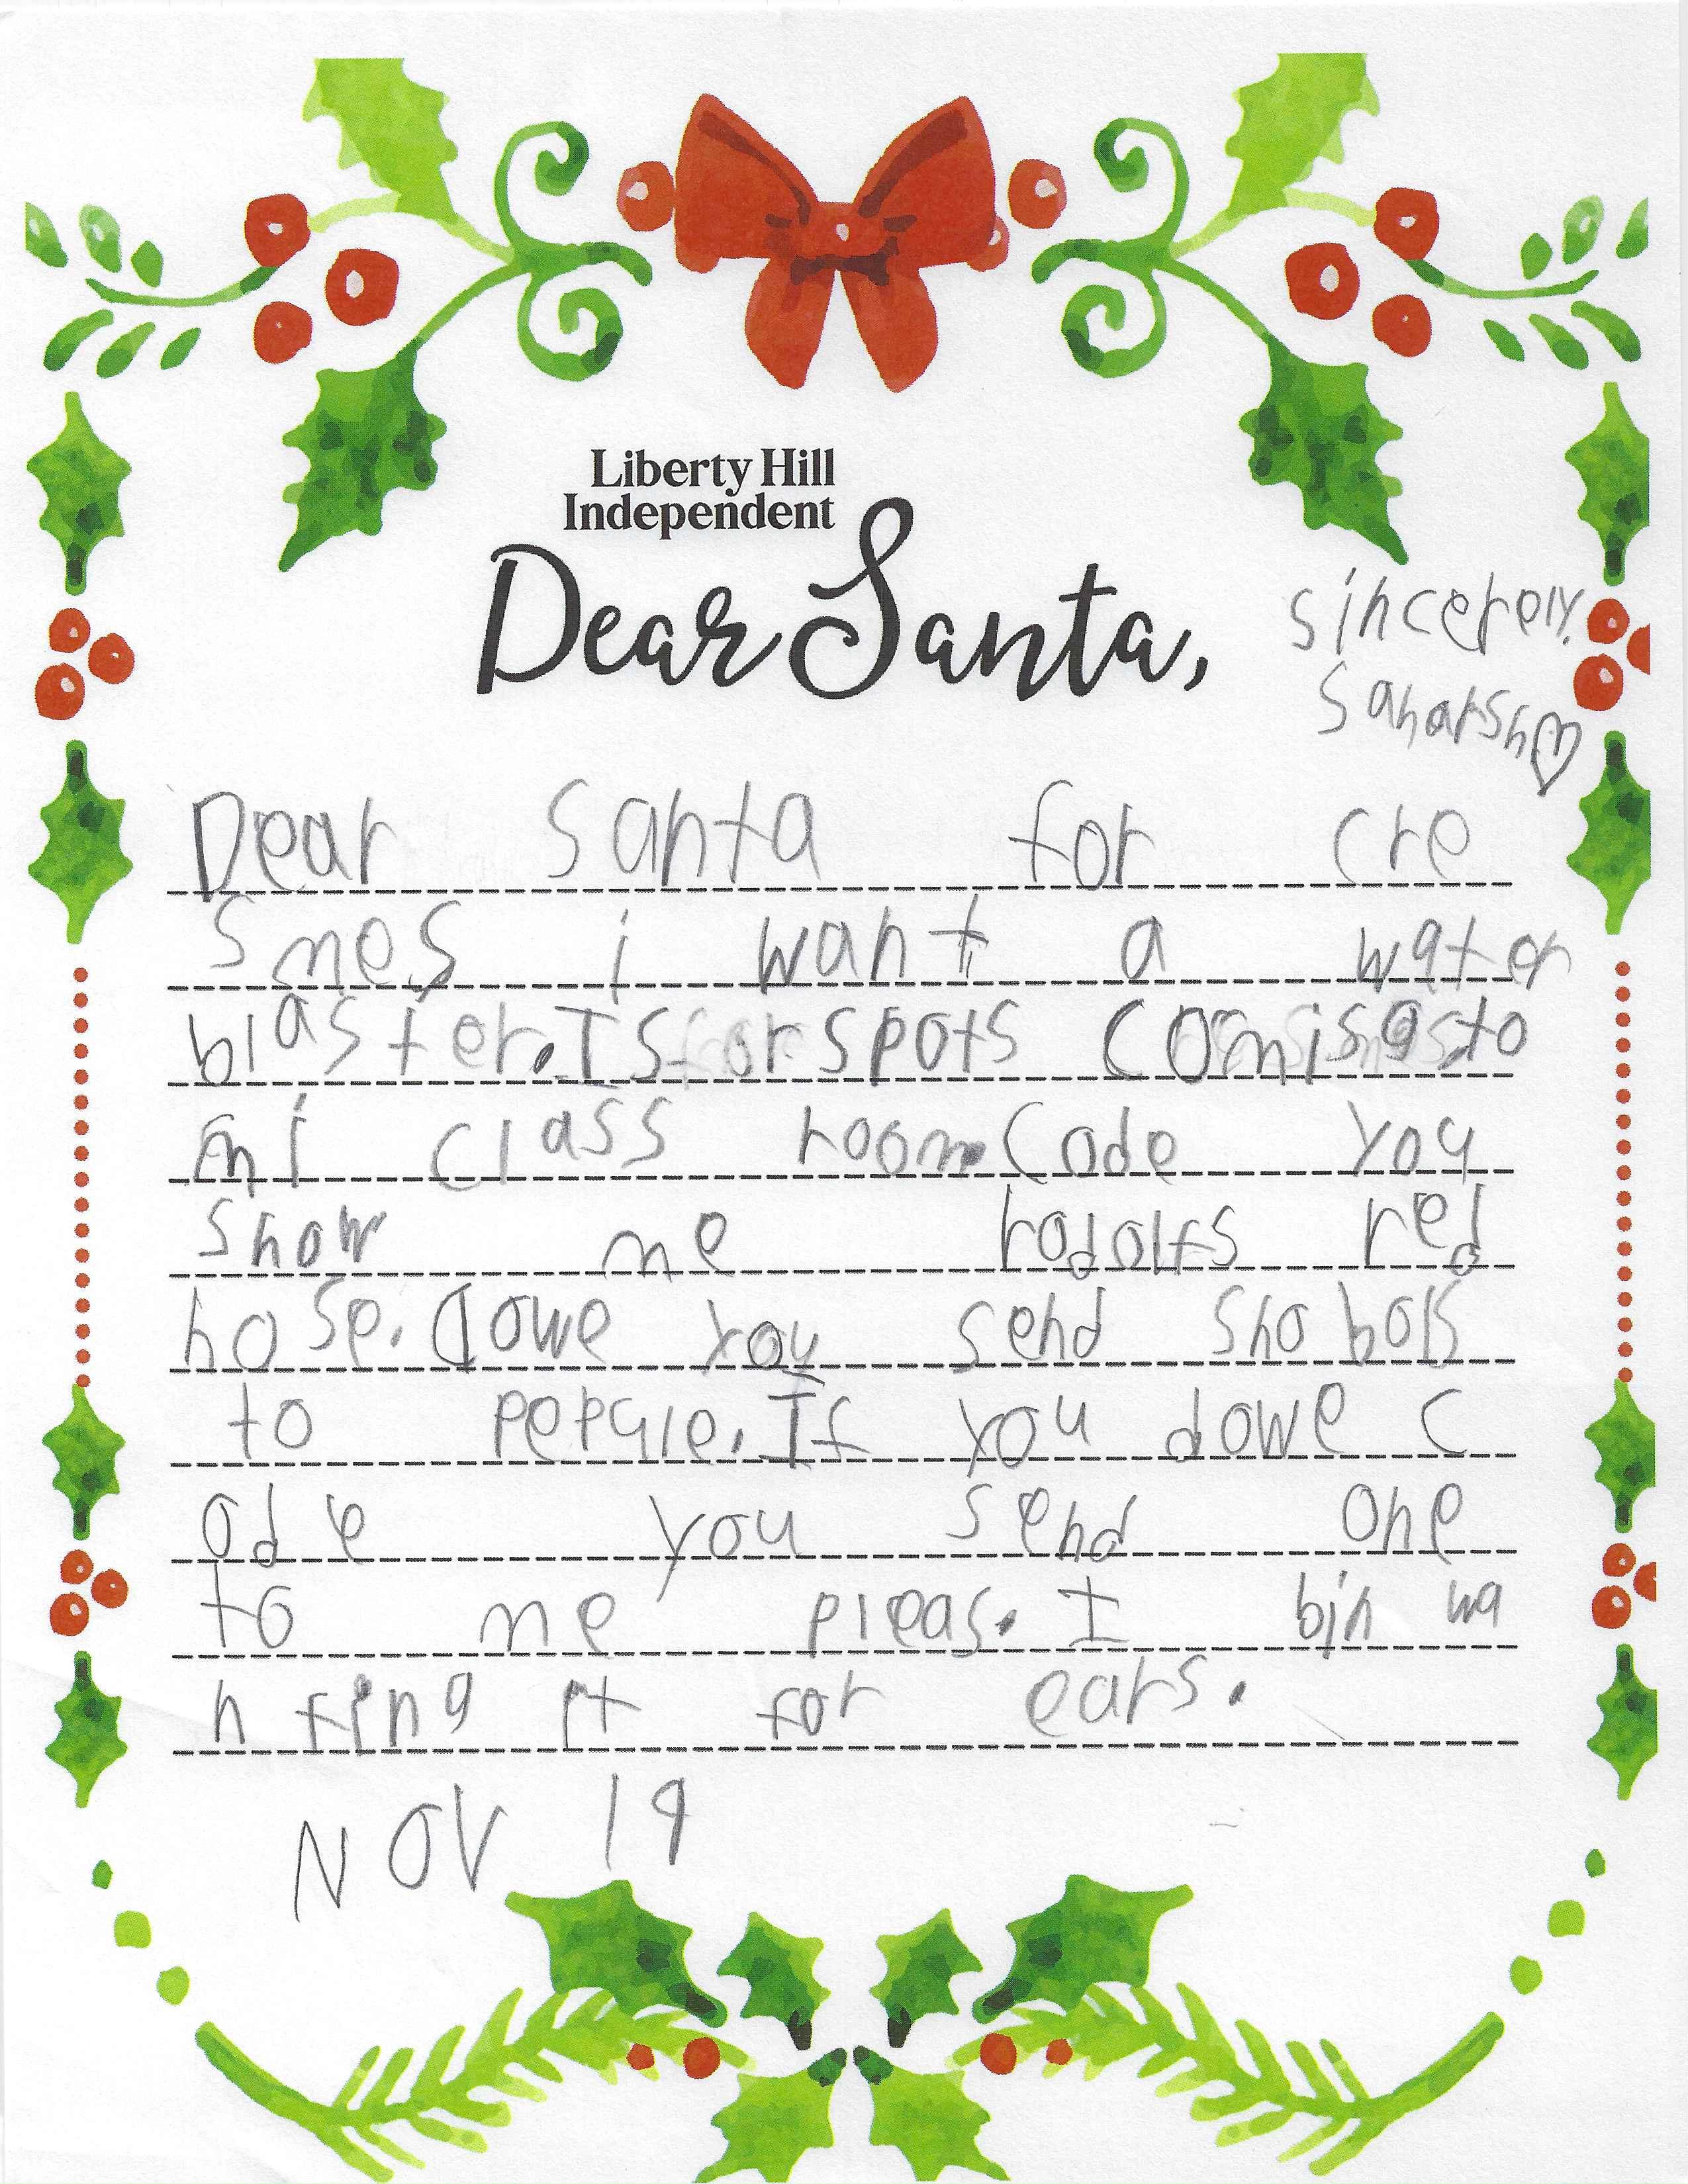 Liberty Hill
Independent
Dear Santa,
sincerely.
Saharsh
Dear Santa for cre
smes i want a water
blaster. Is for spots comis to
mi class room Code you
show me rodolfs red
nose. dowe you send sno bols
to pepqle. If you dowe c
ode you send one
to me pleas. I bin wa
nting it for ears.
NOV 19